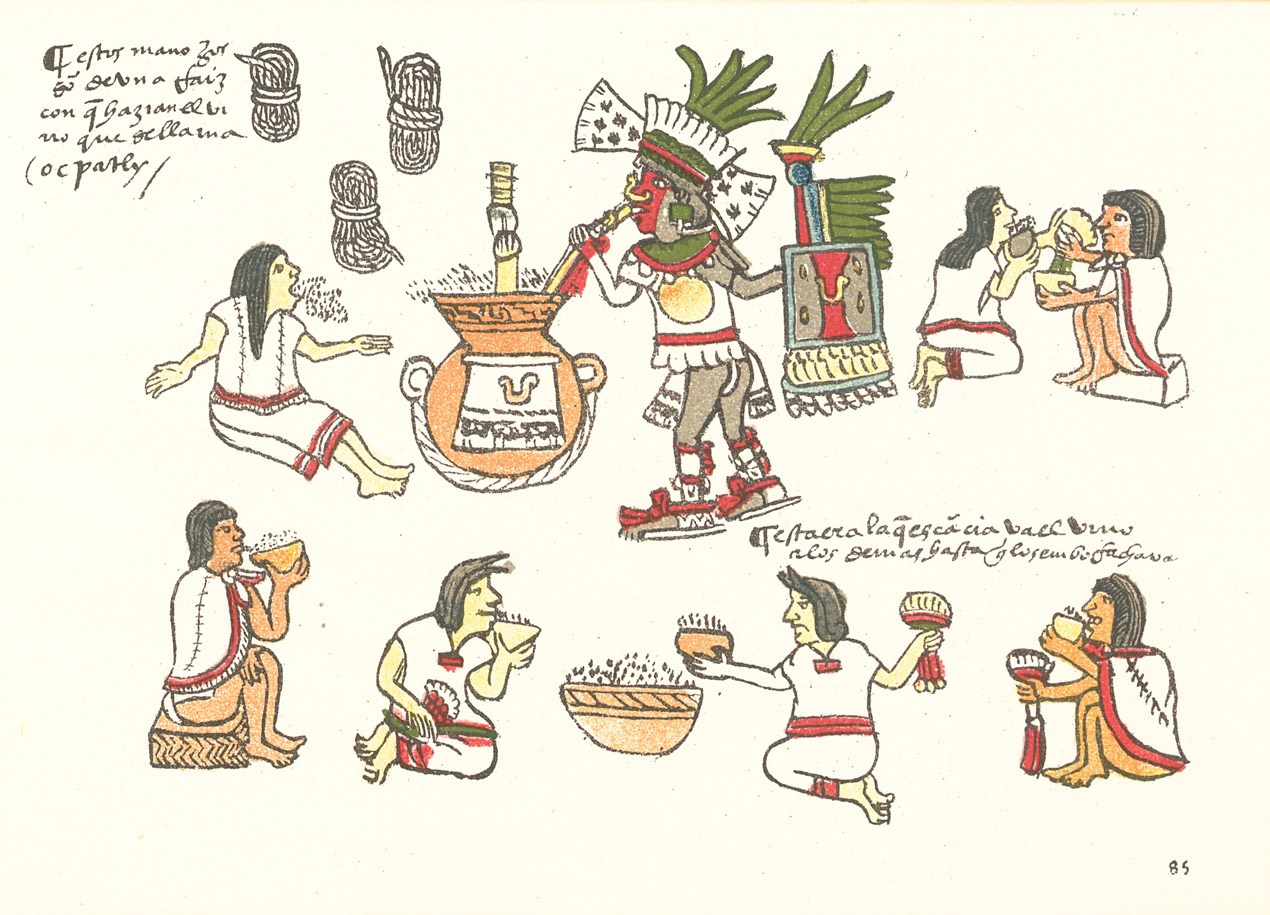 ¶ estos mano Jos
sō de vna Raiz
con q̄ hazian el vi
no que se llama
(ocpatly /
¶ esta era la q̄ escācia va el vino
a los demas hasta q̄ los emborachava
85